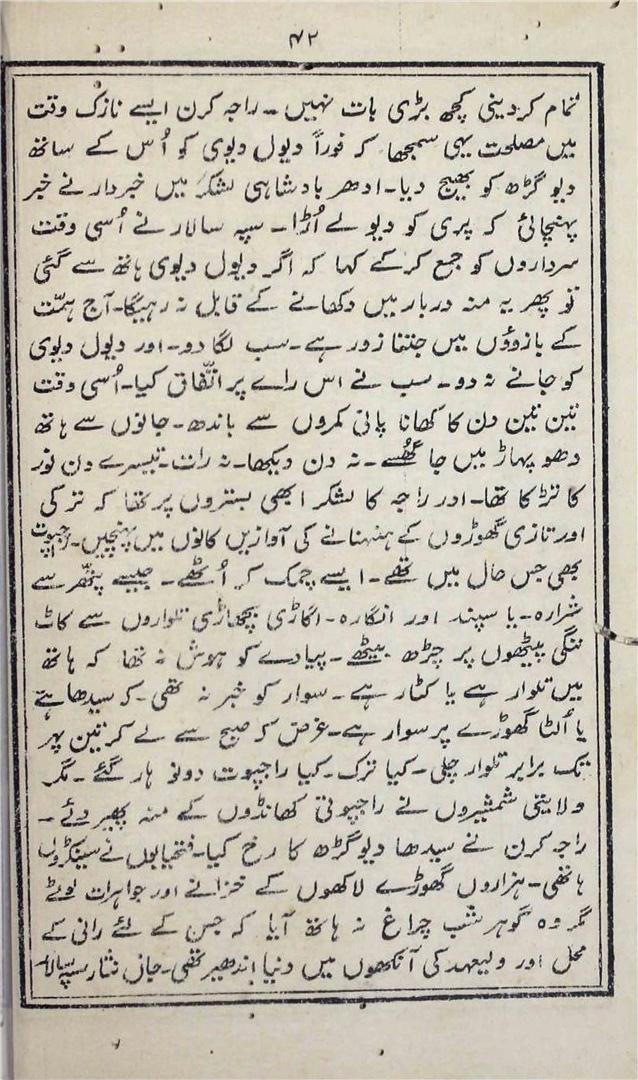 ۴۲
تمام کر دینی کچھ بڑی بات نہیں ۔ راجہ کرن ایسے نازک وقت
میں مصلحت یہی سمجھا کہ فوراً دیول دیوی کو اُس کے ساتھ
دیو گڑھ کو بھیج دیا۔ ادھر بادشاہی لشکر میں خبردار نے خبر
پہنچائی کہ پری کو دیو لے اُڑا۔ سپہ سالار نے اُسی وقت
سرداروں کو جمع کر کے کہا کہ اگر دیول دیوی ہاتھ سے گئی
تو پھر یہ منہ دربار میں دکھانے کے قابل نہ رہیگا۔ آج ہمّت
کے بازوؤں میں جتنا زور ہے۔ سب لگا دو۔ اور دیول دیوی
کو جانے نہ دو۔ سب نے اس راے پر اتّفاق کیا۔ اُسی وقت
تین تین دن کا کھانا پانی کمروں سے باندھ۔ جانوں سے ہاتھ
دھو پہاڑ میں جا گھُسے۔ نہ دن دیکھا۔ نہ رات۔ تیسرے دن نور
کا تڑکا تھا۔ اور راجہ کا لشکر ابھی بستروں پر تھا کہ ترکی
اور تازی گھوڑوں کے ہنہنانے کی آوازیں کانوں میں پہنچیں۔ راجپوت
بھی جس حال میں تھے۔ ایسے چمک کر اُٹھے۔ جیسے پتھّر سے
شرارہ۔ یا سپند اور انگارہ۔ اگاڑی پچھاڑی تلواروں سے کاٹ
ننگی پیٹھوں پر چڑھ بیٹھے۔ پیادے کو ہوش نہ تھا کہ ہاتھ
میں تلوار ہے یا کٹار ہے۔ سوار کو خبر نہ تھی۔ کہ سیدھا ہے
یا اُلٹا گھوڑے پر سوار ہے۔ غرض کہ صبح سے لے کر تین پہر
تک برابر تلوار چلی۔ کیا ترک۔ کیا راجپوت دونو ہار گئے۔ مگر
ولایتی شمشیروں نے راجپوتی کھانڈوں کے منہ پھیر دئے۔
راجہ کرن نے سیدھا دیوگڑھ کا رخ کیا۔ فتحیابوں نے سینکڑوں
ہاتھی۔ ہزاروں گھوڑے لاکھوں کے خزانے اور جواہرات لوٹے
مگر وہ گوہر شب چراغ نہ ہاتھ آیا کہ جس کے لئے رانی کے
محل اور ولیعہد کی آنکھوں میں دنیا اندھیر تھی۔ جاں نثار سپہ سالار